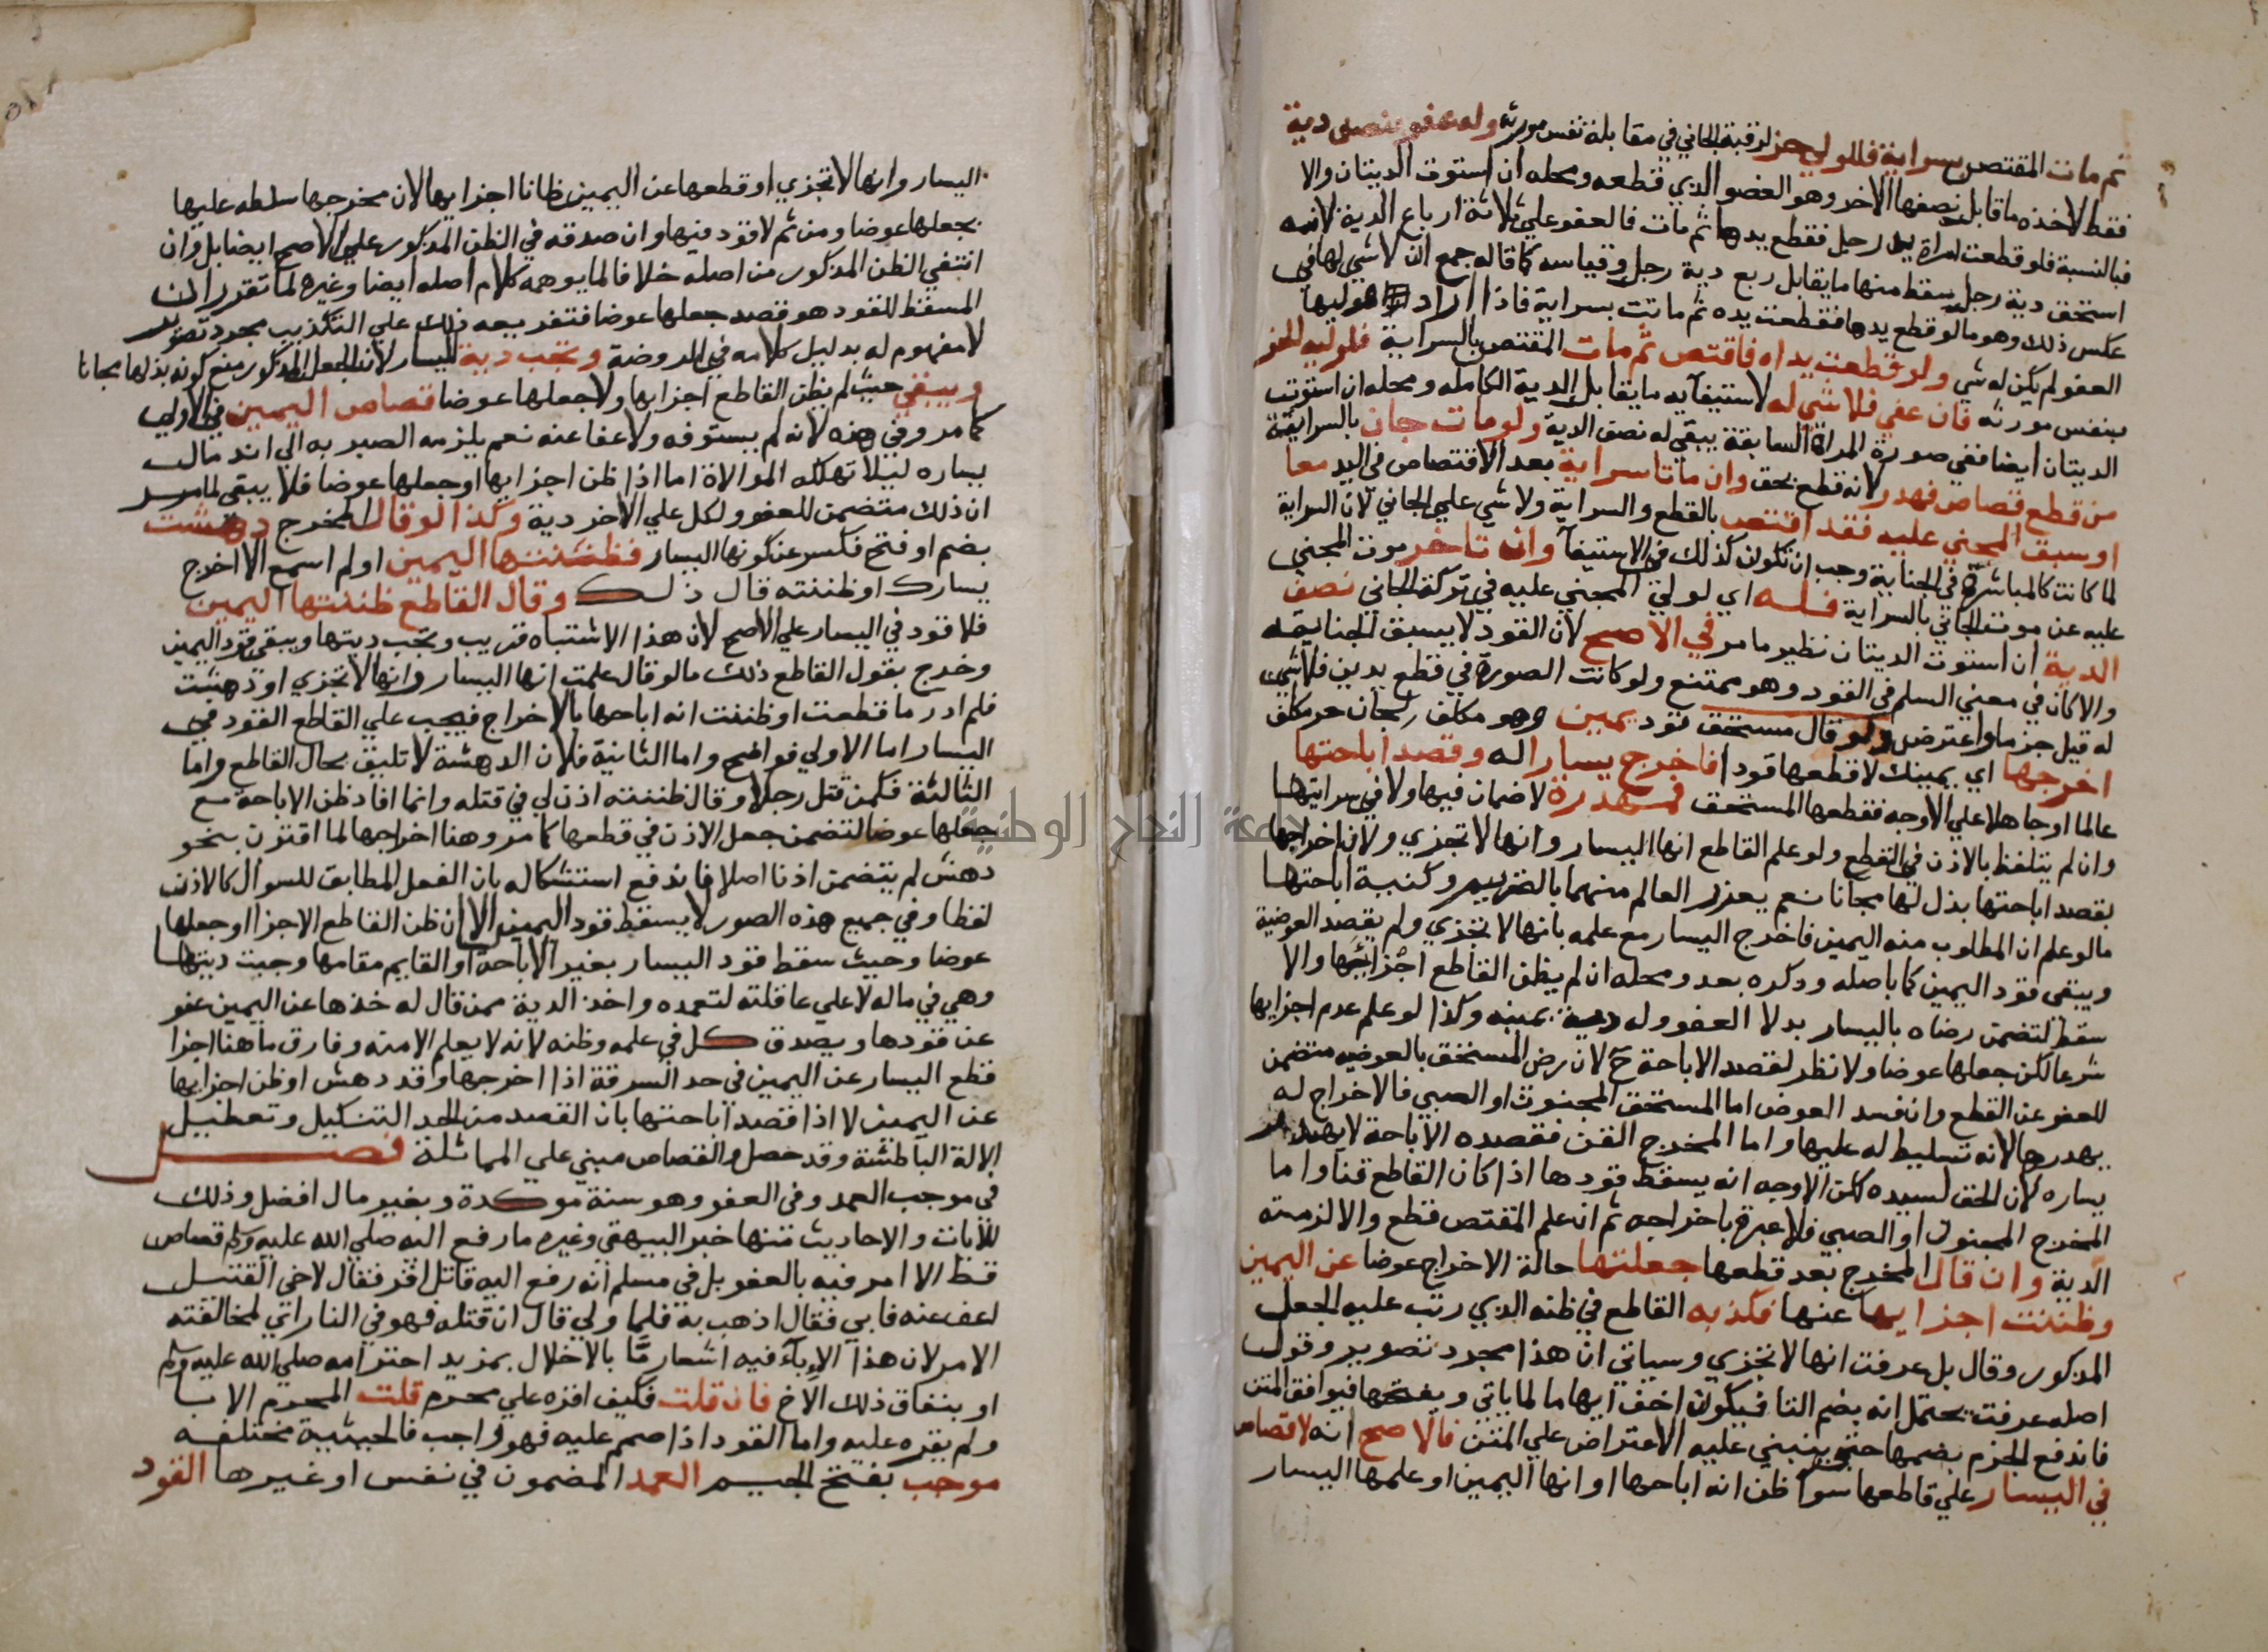 ثم مات المقتص بسراية فللولي حز لرقبة الجاني في مقابلة نفس مورثه وله عفو بنصف دية
فقط لاخذه ما قابل نصفها الاخر وهو العضو الذي قطعه ومحله ان استوت الديتان والا
فبالنسبة فلو قطعت امراة يد رجل فقطع يدها ثم مات فالعفو علي ثلاثة ارباع الدية لانه
استحق دية رجل سقط منها ما يقابل ربع دية رجل وقياسه كما قاله جمع ان لا شي لها في
عكس ذلك وهو ما لو قطع يدها فقطعت يده ثم ماتت بسراية فاذا اراد وليها
العفو لم يكن له شي ولو قطعت يداه فاقتص ثم مات المقتص بالسراية فلوليه الحز
بنفس مورثه فان عفي فلا شي له لاستيفآيه ما يقابل الدية الكامله ومحله ان استوت
الديتان ايضا ففي صورة المراة السابقة يبقي له نصف الدية ولو مات جان بالسراية
من قطع قصاص فهدر لانه قطع بحق وان ماتا سراية بعد الاقتصاص في اليد معا
او سبق المجني عليه فقد اقتص بالقطع والسراية ولا شي علي الجاني لان السراية
لما كانت كالمباشرة في الجناية وجب ان تكون كذلك في الاستيفآ وان تاخر موت المجني
عليه عن موت الجاني بالسراية فله اي لولي المجني عليه في تركة الجاني نصف
الدية ان استوت الديتان نظير ما مر في الاصح لان القود لا يسبق الجناية
والا كان في معني السلم في القود وهو ممتنع ولو كانت الصورة في قطع يدين فلا شي
له قيل جزما واعترض ولو قال مستحق قود يمين وهو مكلف لجان حر مكلف
اخرجها اي يمينك لاقطعها قودا فاخرج يسارا له وقصد اباحتها
عالما او جاهلا علي الاوجه فقطعها المستحق فمهدرة لا ضمان فيها ولا في سرايتها
وان لم يتلفظ بالاذن في القطع ولو علم القاطع انها اليسار وانها لا تجزي ولان اخراجها
بقصد اباحتها بذل لها مجانا نعم يعزر العالم منهما بالتحريم وكنية اباحتها
ما لو علم ان المطلوب منه اليمين فاخرج اليسار مع علمه بانها لا تجزي ولم يقصد العوضية
ويبقي قود اليمين كما باصله وذكره بعد ومحله ان لم يظن القاطع اجزائها والا
سقط لتضمن رضاه باليسار بدلا العفو وله دية يمينه وكذا لو علم عدم اجزايها
شرعا لكن جعلها عوضا ولا نظر لقصد الاباحة ح لان رض المستحق بالعوضيه متضمن
للعفو عن القطع وان فسد العوض اما المستحق المجنون او الصبي فالاخراج له
يهدرها لانه تسليط له عليها واما المخرج القن فقصده الاباحة لا يهدر
يساره لان الحق لسيده لكن الاوجه انه يسقط قودها اذا كان القاطع قنا واما
المخرج المجنون او الصبي فلا عبرة باخراجه ثم ان علم المقتص قطع والا لزمته
الدية وان قال المخرج بعد قطعها جعلتها حالة الاخراج عوضا عن اليمين
وظننت اجزايها عنها فكذبه القاطع في ظنه الذي رتب عليه الجعل
المذكور وقال بل عرفت انها لا تجزي وسياتي ان هذا مجرد تصوير وقول
اصله عرفت يحتمل انه بضم التا فيكون اخف ايهاما لما ياتي وبفتحها فيوافق المتن
فاندفع الجزم بضمها حتي ينبني عليه الاعتراض علي المتن فالاصح انه لا قصاص
في اليسار علي قاطعها سوآ ظن انه اباحها او انها اليمين او علمها اليسار
اليسار وانها لا تجزي او قطعها عن اليمين ظانا اجزايها لان مخرجها سلطه عليها
بجعلها عوضا ومن ثم لا قود فيها وان صدقه في الظن المذكور علي الاصح ايضا بل وان
انتفي الظن المذكور من اصله خلافا لما يوهمه كلام اصله ايضا وغيره لما تقرر ان
المسقط للقود هو قصد جعلها عوضا فتفريعه ذلك علي التكذيب مجرد تصوير
لا مفهوم له بدليل كلامه في الروضة وتجب دية لليسار لان الجعل المذكور منع كونه بذلها مجانا
ويبقي حيث لم يظن القاطع اجزايها ولا جعلها عوضا قصاص اليمين في الاولي
كما مر وفي هذه لانه لم يستوفه ولا عفا عنه نعم يلزمه الصبر به الي اندمال
يساره ليلا تهلكه الموالاة اما اذا ظن اجزايها او جعلها عوضا فلا يبقي لما مر
ان ذلك متضمن للعفو ولكل علي الاخر دية وكذا لو قال المخرج دهشت
بضم او فتح فكسر عن كونها اليسار فظننتها اليمين او لم اسمع الا اخرج
يسارك او ظننته قال ذلك وقال القاطع ظننتها اليمين
فلا قود في اليسار علي الاصح لان هذا الاشتباه قريب وتجب ديتها ويبقي قود اليمين
وخرج بقول القاطع ذلك ما لو قال علمت انها اليسار وانها لا تجزي او دهشت
فلم ادر ما قطعت او ظننت انه اباحها بالاخراج فيجب علي القاطع القود في
اليسار اما الاولي فواضح واما الثانية فلان الدهشة لا تليق بحال القاطع واما
الثالثة فكمن قتل رجلا وقال ظننته اذن لي في قتله وانما افاد ظن الاباحة مع
جعلها عوضا لتضمن جعل الاذن في قطعها كما مر وهنا اخراجها لما اقترن بنحو
دهش لم يتضمن اذنا اصلا فاندفع استشكاله بان الفعل المطابق للسوال كالاذن
لفظا وفي جميع هذه الصور لا يسقط قود اليمين الا ان ظن القاطع الاجزا او جعلها
عوضا وحيث سقط قود اليسار بغير الاباحة او القايم مقامها وجبت ديتها
وهي في ماله لا علي عاقلته لتعمده واخذ الدية ممن قال له خذها عن اليمين عفو
عن قودها ويصدق كل في علمه وظنه لانه لا يعلم الا منه وفارق ما هنا اجزا
قطع اليسار عن اليمين في حد السرقة اذا اخرجها وقد دهش او ظن اجزايها
عن اليمين لا اذا قصد اباحتها بان القصد من الحد التنكيل وتعطيل
الالة الباطشة وقد حصل والقصاص مبني علي المماثلة فصل
في موجب العمد وفي العفو وهو سنة موكدة وبغير مال افضل وذلك
للآيات والاحاديث منها خبر البيهقي وغيره ما رفع اليه صلي الله عليه وسلم قصاص
قط الا امر فيه بالعفو بل في مسلم انه رفع اليه قاتل اقر فقال لاخي القتيل
اعف عنه فابي فقال اذهب به فلما ولي قال ان قتله فهو في النار اي لمخالفته
الامر لان هذا الاباء فيه اشعار ما بالاخلال بمزيد احترامه صلي الله عليه وسلم
او بنفاق ذلك الاخ فان قلت فكيف اقره علي محرم قلت المحرم الابا
ولم يقره عليه واما القود اذا صمم عليه فهو واجب فالحيثية مختلفة
موجب بفتح الجيم العمد المضمون في نفس او غيرها القود
جامعة النجاح الوطنية